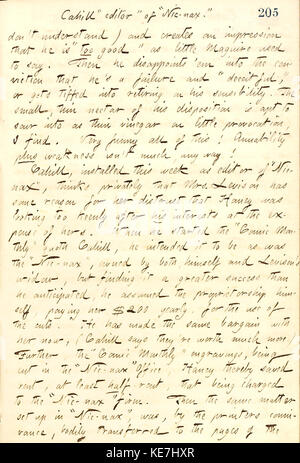 Cahill "editor" of "Nic-nax."
205
don't understand) and creates an impression
that he is "too good" as little Maguire used
to say. Then he disappoints 'em into the con-
viction that he's a failure and "deceitful,"
or gets tiffed into retiring on his sensibility. The
small, thin nectar of his disposition is apt to
sour into as thin vinegar on little provocation,
I find. Very funny all of this! Amiability
plus weakness isn't much any way!
Cahill, installed this week as editor of "Nic-
nax", thinks privately that Mrs. Levison has
some reason for her distrust that Haney was
looking too keenly after his interests at the ex-
pense of hers. When he started the "Comic Mon-
thly" quoth Cahill, he intended it to be as was
the "Nic-nax", owned by both himself and Levison's
widow, but finding it a greater success than
he anticipated, he assumed the proprietorship him-
self, paying her $200 yearly, for the use of
the cuts. He has made the same bargain with
her now, (Cahill says they're worth much more)
Further, the "Comic Monthly" engravings, being
cut in the "Nic-nax" Office, Haney thereby saved
rent, at least half rent, that being charged
to the "Nic-nax" firm. Then the same matter
set up in "Nic-nax", was, by the printers conni-
vance, bodily transferred to the pages of the
alamy
Image ID: KE7HXR
www.alamy.com